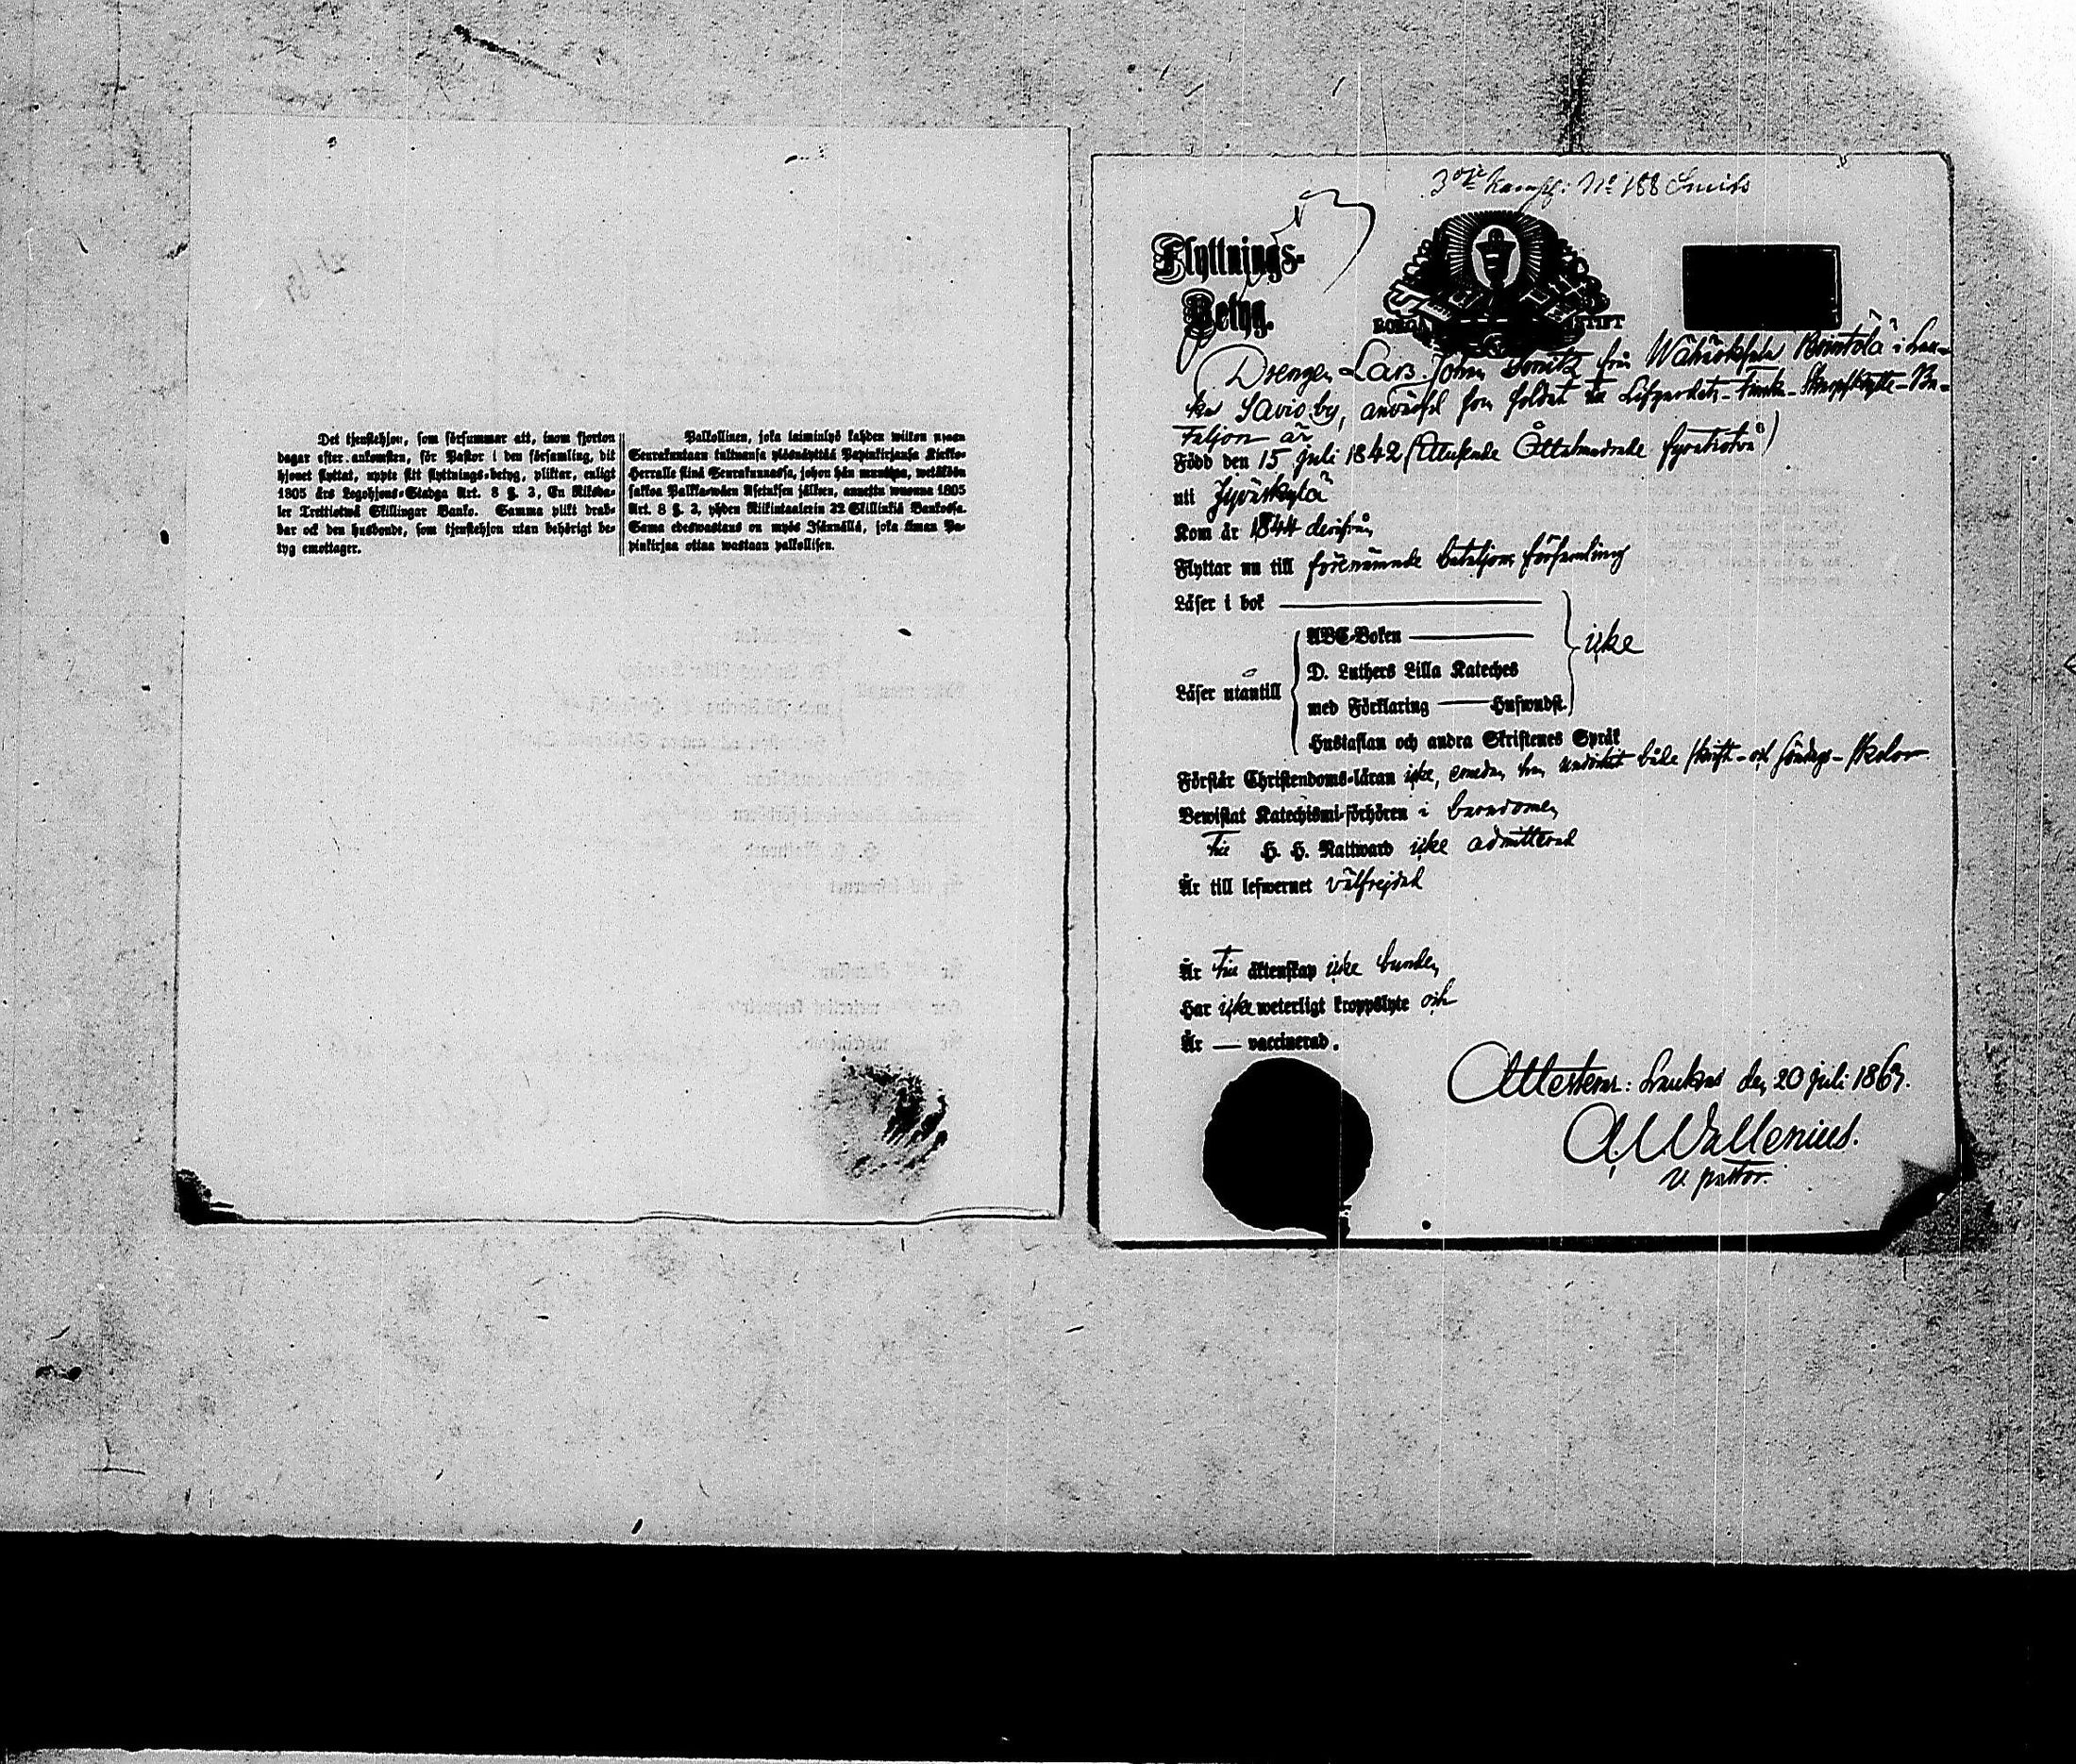 Det tjenstehjon, som försummar att, inom fjorton
dagar efter ankomsten, för Pastor i den församling, dit
hjonet flyttat, uppte sitt flyttnings-betyg, pliktar, enligt
1805 års Legohjons-Stadga Art. 8 §. 3, En Riksda-
ler Trettiotwå Skillingar Banko. Samma plikt drab-
bar ock den husbonde, som tjenstehjon utan behörigt be-
tyg emottager.
Palkollinen, joka laiminlyö kahden wiikon
Seurakuntaan tultuansa ylösnäyttää Papinkirjansa Kirkko-
Herralle siinä Seurakunnassa, johon hän muuttaa, wetäköön
sakkoa Palkka-wäen Asetuksen jälkeen, annettu wuonna 1805
Art. 8 §. 3, yhden Riikintaalerin 32 Skillinkiä Bankossa.
Sama edeswastaus on myös Isännällä, joka ilman Pa-
pinkirjaa ottaa wastaan palkollisen.
3dje Komp: No 188 Smits
Flyttnings-
Betyg.
BORGÅ STIFT
Drengen Lars John från i Lau-
kas Savio by, antagen som soldat till Lifgardets Finska Skarpskytte-Ba-
taljon är
Född den 15 Juli 1842 (Ettusende Åttahundrade fyratiotvå)
uti Jyväskylä
Kom år 1844 derifrån
Flyttar nu till förenämnde bataljons församling
Läser i bok
Läser utantill
ABC-Boken
D. Luthers Lilla Kateches
med Förklaring Hufwudst.
icke
Hustaflan och andra Skriftenes Språk
Förstår Christendoms-läran icke, emedan han undvikit både skrift- och söndags-skolor
Bewistat Katechismi-förhören i barndomen
Till H. H. Nattward icke admitterad
Är till lefwernet välfrejdad
Är till äktenskap icke bunden
Har icke weterligt kroppslyte och
Är — vaccinerad.
Attesterar: Laukas den 20 Juli 1863.
A Wallenius.
v. pastor.